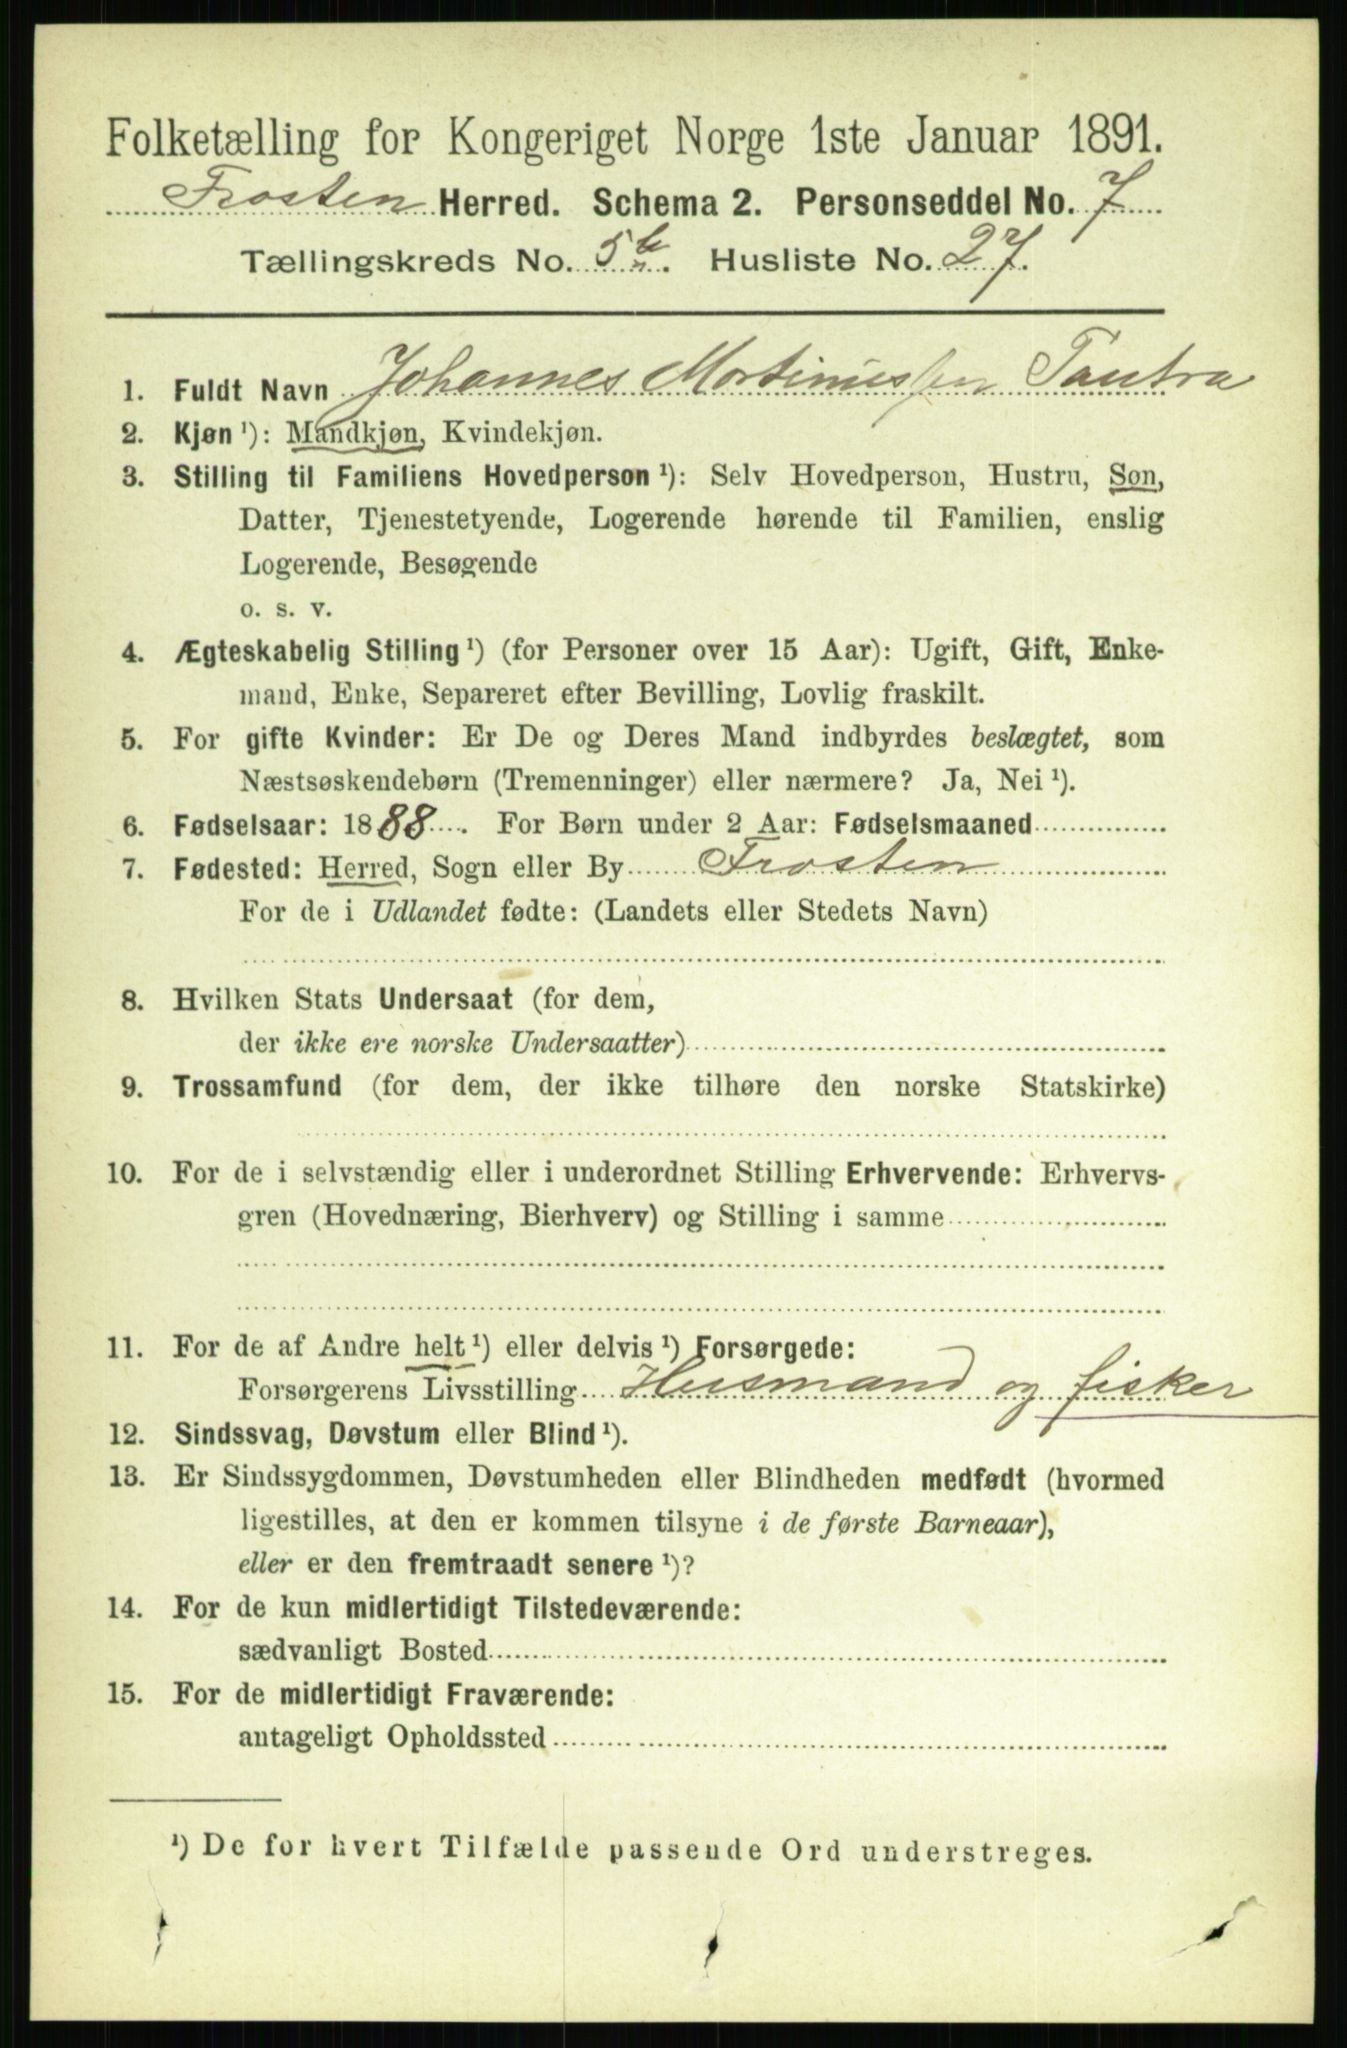 Folketælling for Kongeriget Norge 1ste Januar 1891.
Frosten Herred. Schema 2. Personseddel No. 7
Tællingskreds No. 5 b. Husliste No. 27.
1. Fuldt Navn Johannes Mortinussen Tautra
2. Kjøn ¹): Mandkjøn, Kvindekjøn.
3. Stilling til Familiens Hovedperson ¹): Selv Hovedperson, Hustru, Søn,
Datter, Tjenestetyende, Logerende hørende til Familien, enslig
Logerende, Besøgende
o. s. v.
4. Ægteskabelig Stilling ¹) (for Personer over 15 Aar): Ugift, Gift, Enke-
mand, Enke, Separeret efter Bevilling, Lovlig fraskilt.
5. For gifte Kvinder: Er De og Deres Mand indbyrdes beslægtet, som
Næstsøskendebørn (Tremenninger) eller nærmere? Ja, Nei ¹).
6. Fødselsaar: 1888. For Børn under 2 Aar: Fødselsmaaned
7. Fødested: Herred, Sogn eller By Frosten
For de i Udlandet fødte: (Landets eller Stedets Navn)
8. Hvilken Stats Undersaat (for dem,
der ikke ere norske Undersaatter)
9. Trossamfund (for dem, der ikke tilhøre den norske Statskirke)
10. For de i selvstændig eller i underordnet Stilling Erhvervende: Erhvervs-
gren (Hovednæring, Bierhverv) og Stilling i samme
11. For de af Andre helt ¹) eller delvis ¹) Forsørgede:
Forsørgerens Livsstilling Husmand og fisker
12. Sindssvag, Døvstum eller Blind ¹).
13. Er Sindssygdommen, Døvstumheden eller Blindheden medfødt (hvormed
ligestilles, at den er kommen tilsyne i de første Barneaar),
eller er den fremtraadt senere ¹)?
14. For de kun midlertidigt Tilstedeværende:
sædvanligt Bosted
15. For de midlertidigt Fraværende:
antageligt Opholdssted
¹) De for hvert Tilfælde passende Ord understreges.